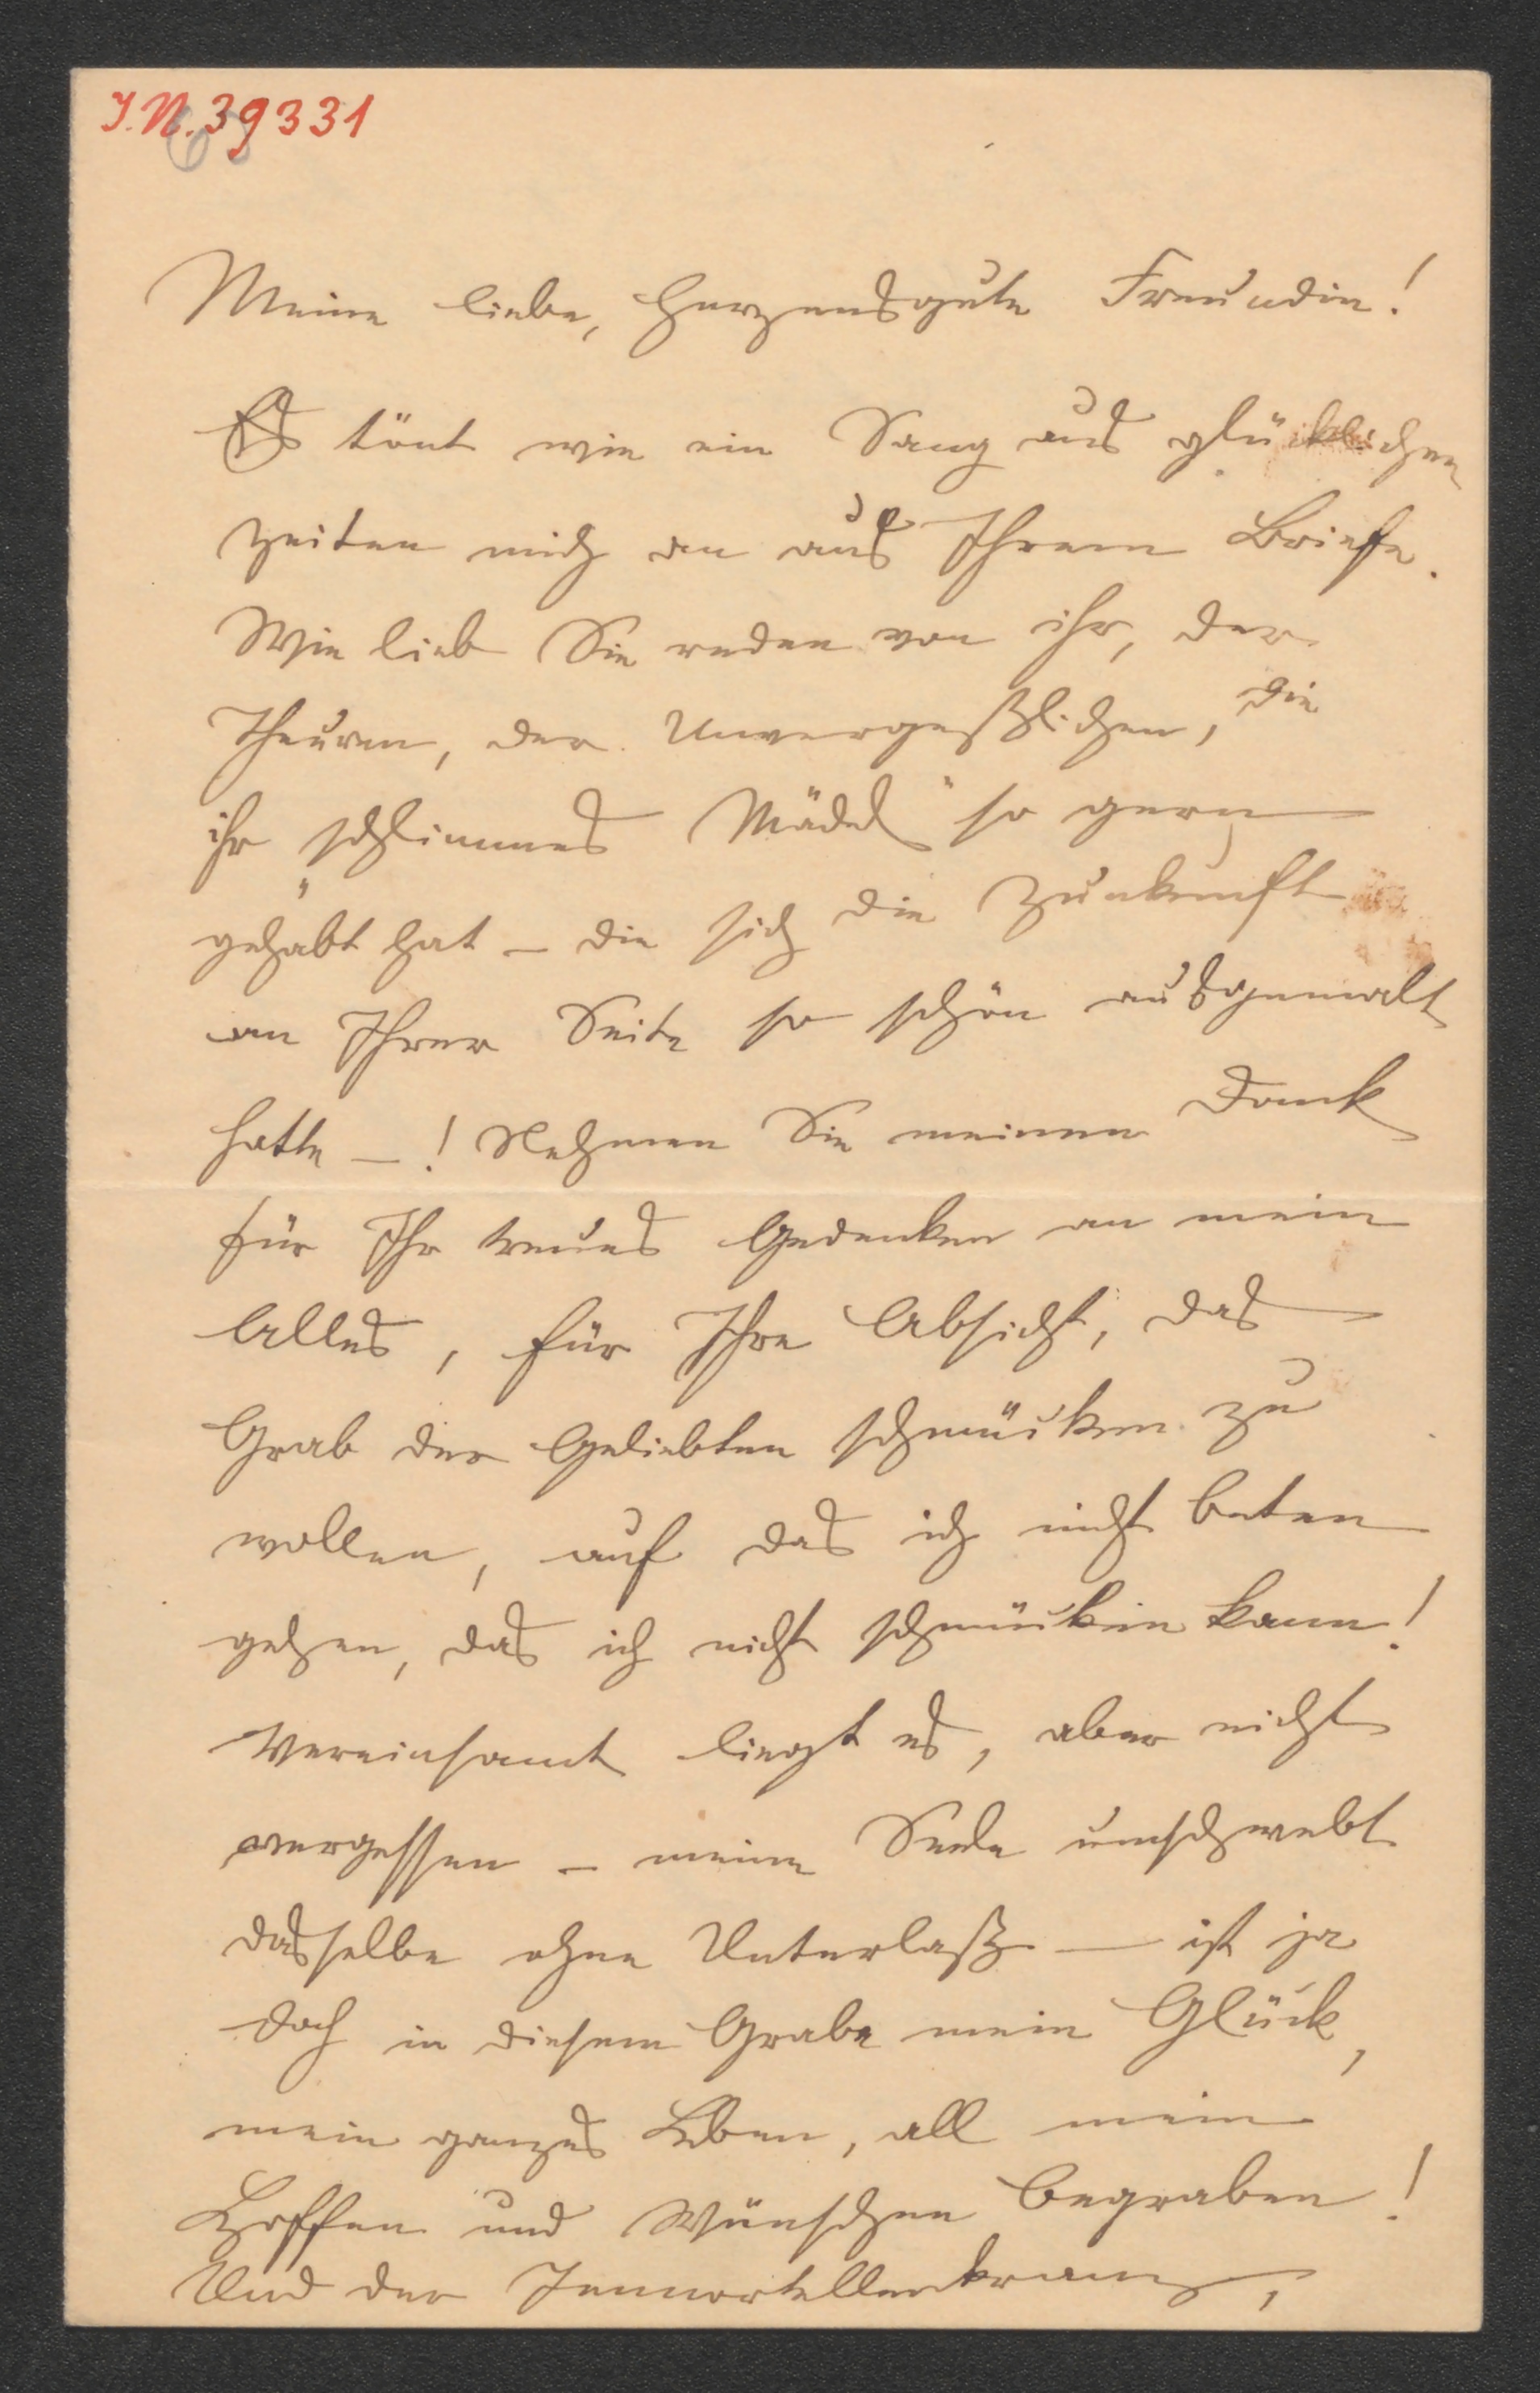 I.N. 39331
Meine liebe, herzensgute Freundin!
Es tönt wie ein Sang aus glücklichen
Zeiten mich an aus Ihrem Briefe.
Wie lieb Sie reden von ihr, der
Theuren, der Unvergeßlichen, die
ihr „schlimmes Mädel“ so gern
gehabt hat – die sich die Zunkunft
an Ihrer Seite so schön ausgemalt
hatte – ! Nehmen Sie meinen Dank
für Ihr treues Gedenken an mein
Alles, für Ihre Absicht, das
Grab der Geliebten schmücken zu
wollen, auf das ich nicht beten
gehen, das ich nicht schmücken kann!
Vereinsamt liegt es, aber nicht
vergessen – meine Seele umschwebt
dasselbe ohne Unterlaß – ist ja
doch in diesem Grabe mein Glück,
mein ganzes Leben, all mein
Hoffen und Wünschen begraben!
Und der Immortellenkranz,